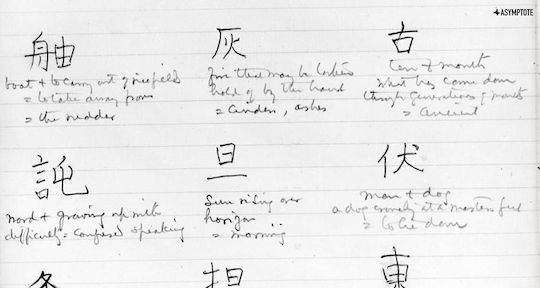 ASYMPTOTE
舳
boat + to carry out of ricefields
= to take away from
= the rudder
灰
fire that may be
hold of by the hand
= cinders, ashes
古
ten + mouth
what has come down
through generations of mouths
= ancient
訰
word + growing up with
difficulty = confused speaking
旦
Sun rising over
horizon
= morning
伏
man + dog
a dog at a master's feet
= to lie down
担
東